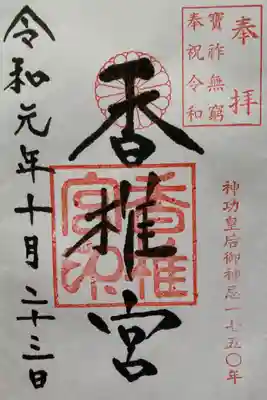 奉拝
寶祚無窮
奉祝令和
神功皇后御神忌一七五〇年
香椎宮
香椎
宮印
令和元年十月二十三日